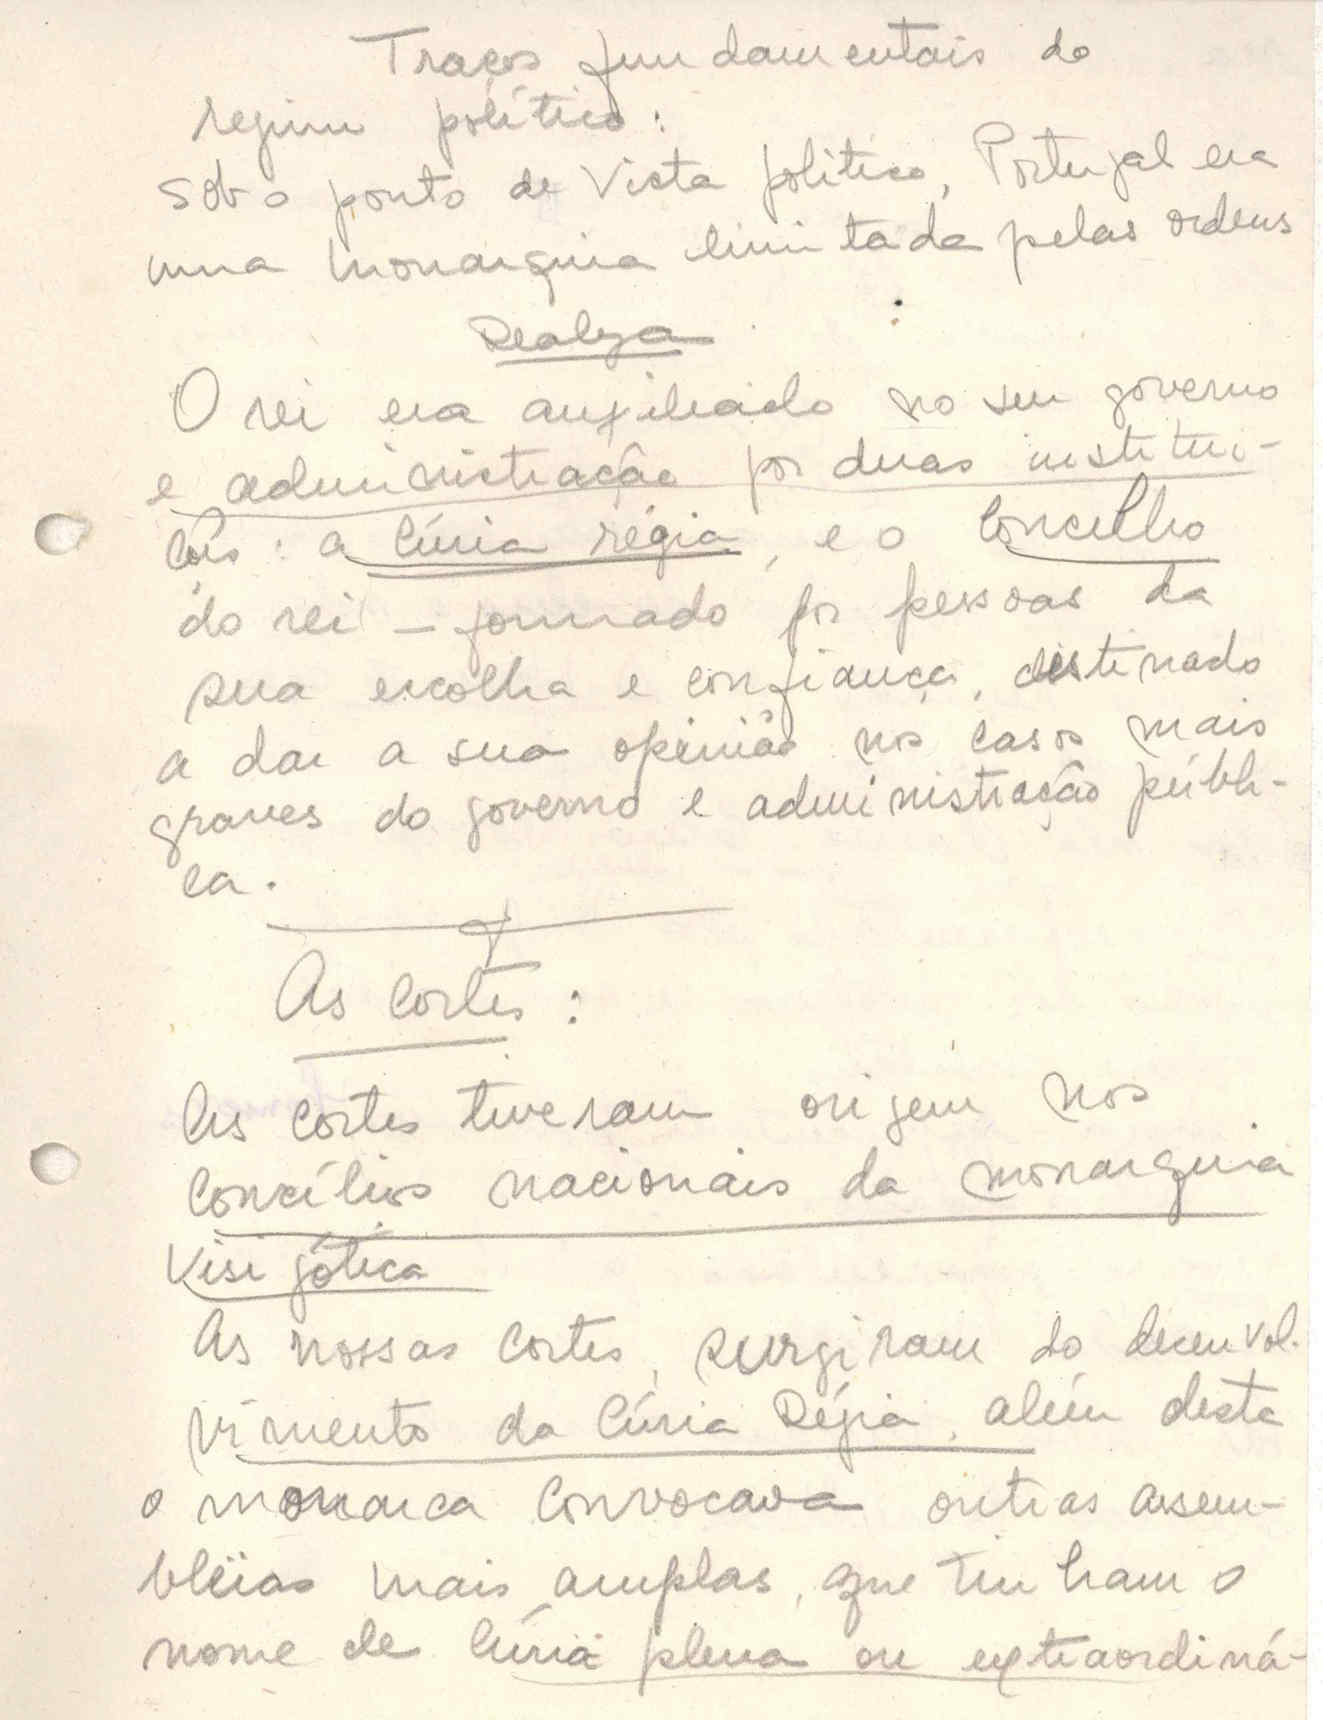 Traços fundamentais do
regime político:
Sob o ponto de Vista político, Portugal era
uma monarquia limitada pelas ordens
Realeza
O rei era auxiliado no seu governo
e administração por duas institui-
ções: a Cúria régia, e o Concelho
do rei – formado por pessoas da
sua escolha e confiança, destinado
a dar a sua opinião nos casos mais
graves do governo e administração públi-
ca.
As Cortes:
As Cortes tiveram origem nos
Concílios nacionais da monarquia
Visigótica
As nossas Cortes, surgiram do desenvol-
vimento da Cúria Régia, além desta
o monarca Convocava outras assem-
bleias mais amplas, que tinham o
nome de Cúria plena ou extraordiná-